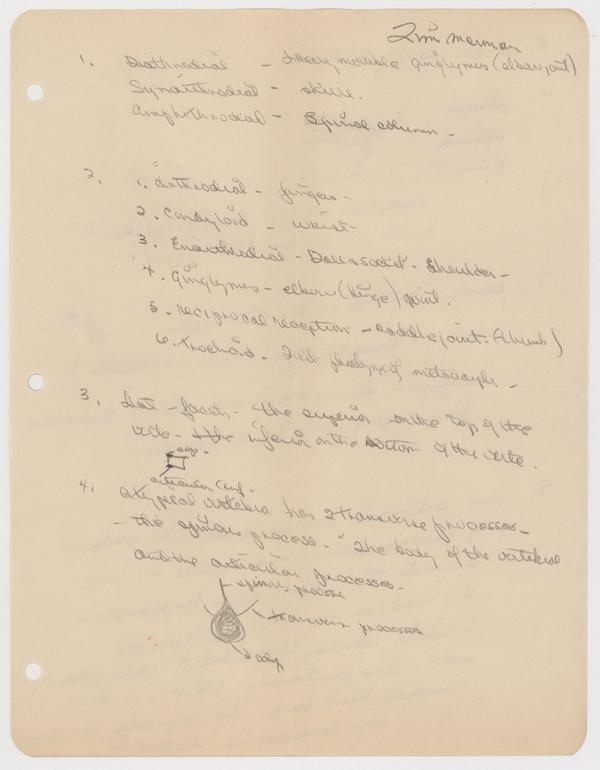 Zimmerman
1. Diathrodial - freely movable ginglymus (elbow joint)
Synarthrodial - skull.
Amphithrodial - Spinal column -
2. 1. Arthrodial - fingers -
2. Condyloid - wrist -
3. Enarthrodial - Ball & socket - Shoulder -
4. Ginglymus - elbow (hinge) joint.
5. reciprocal reception - saddle joint - (thumb)
6. trochoid - 2nd
3. flat - facets - the superior on the top of the
verte - & the inferior on the bottom of the verte.
sup.
articulation (inf.
4. A typical vertebra has 2 transverse processes -
- the spinous process - the body of the vertebral
and the articular processes -
spinous process
transverse processes
body